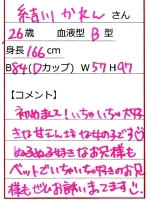 結川 かれん さん
26歳 血液型 B型
身長 166cm
B84(Dカップ) W57 H97
【コメント】
初めまして!いちゃいちゃ大好
きな甘えん坊な女の子です
ぬるぬる好きなお兄様も
ベットでいちゃいちゃ好きのお兄
様もぜひお誘いまってます